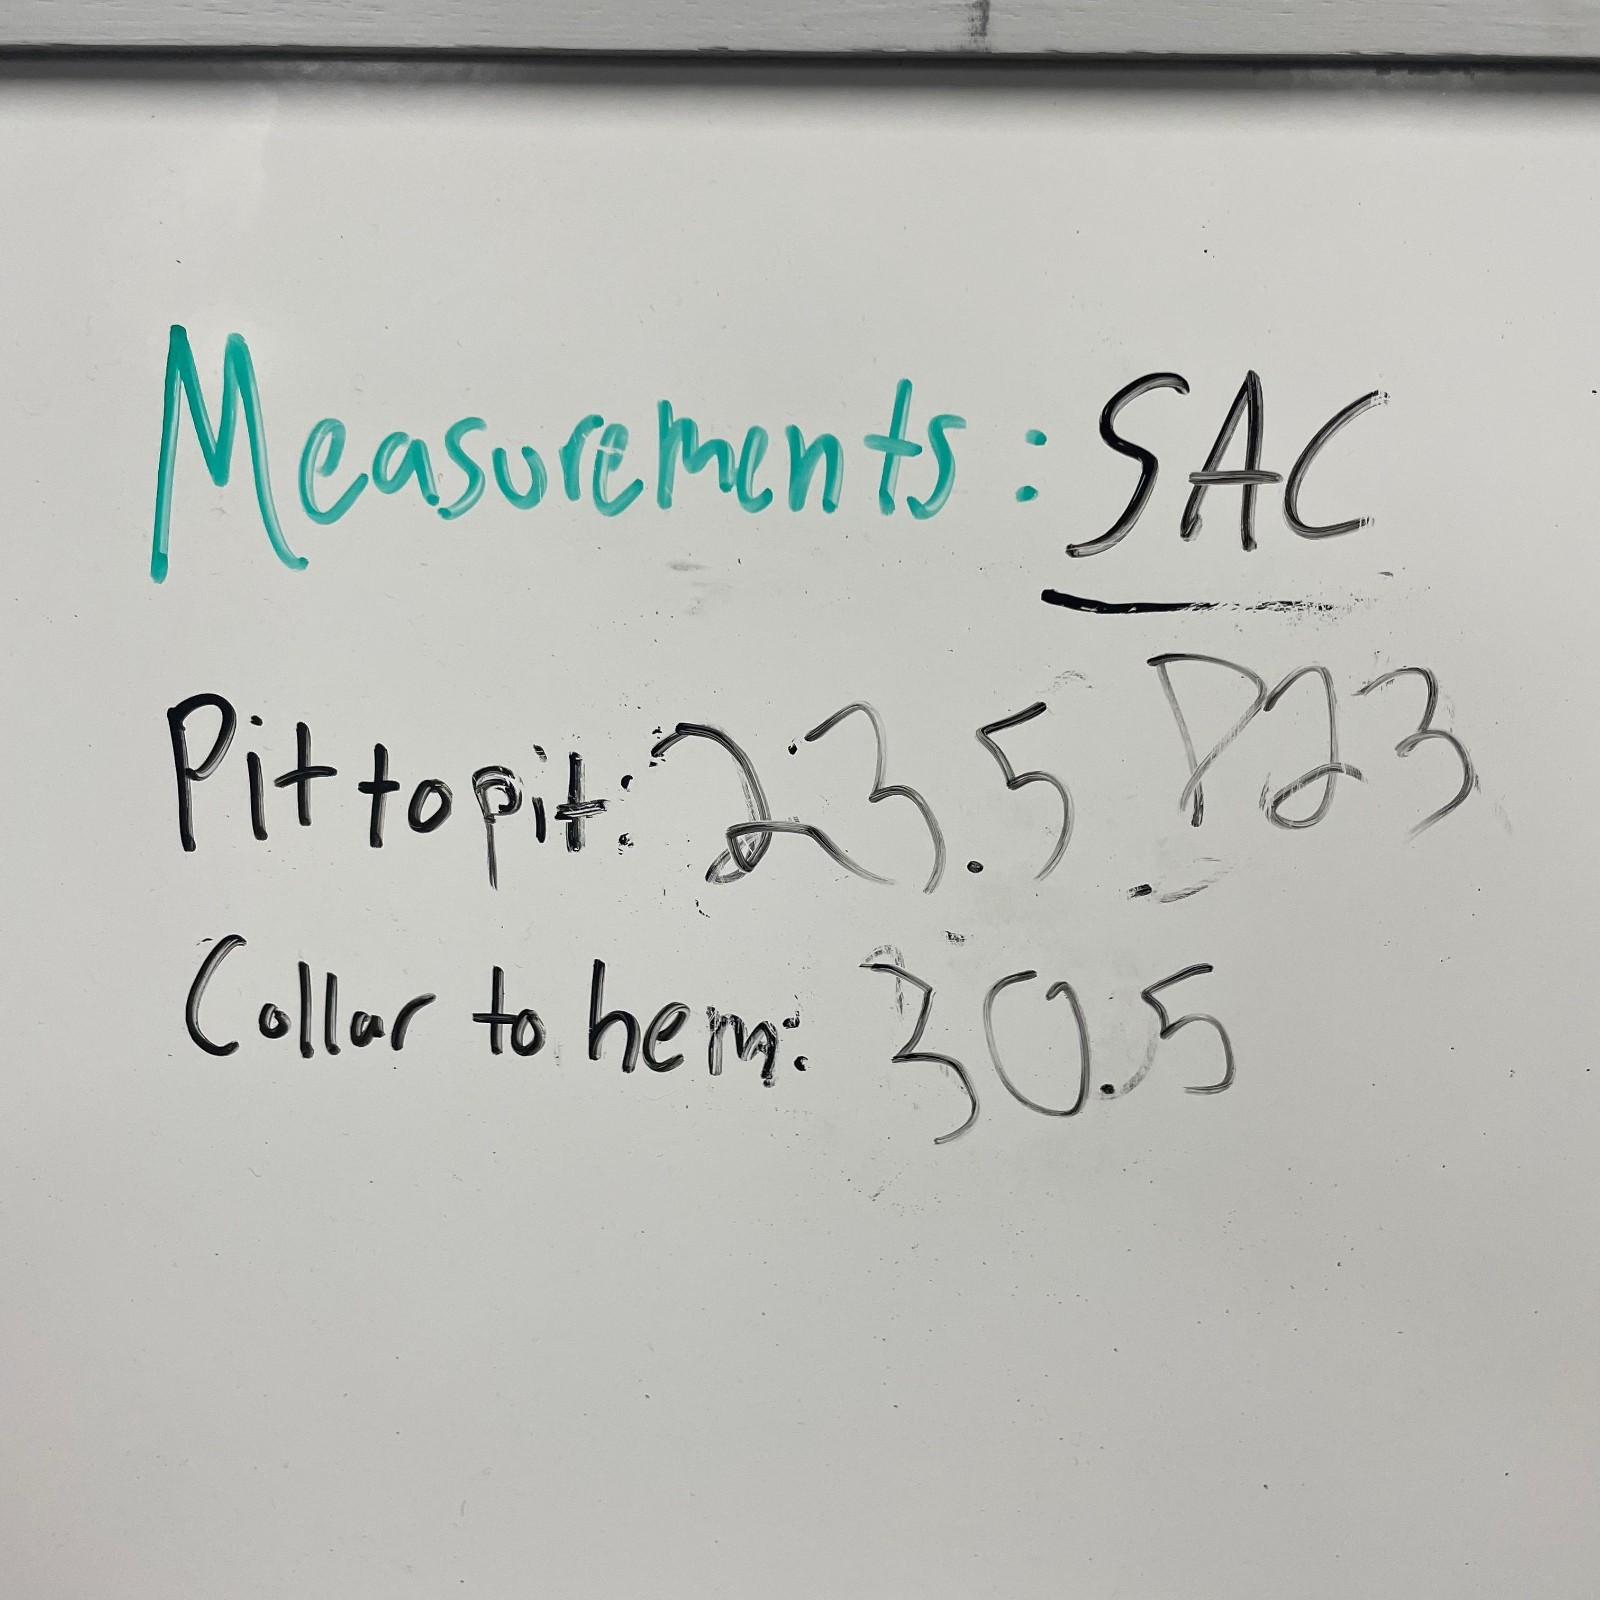 Measurements: SAC
Pit to pit: 23.5 P23
Collar to hem: 30.5